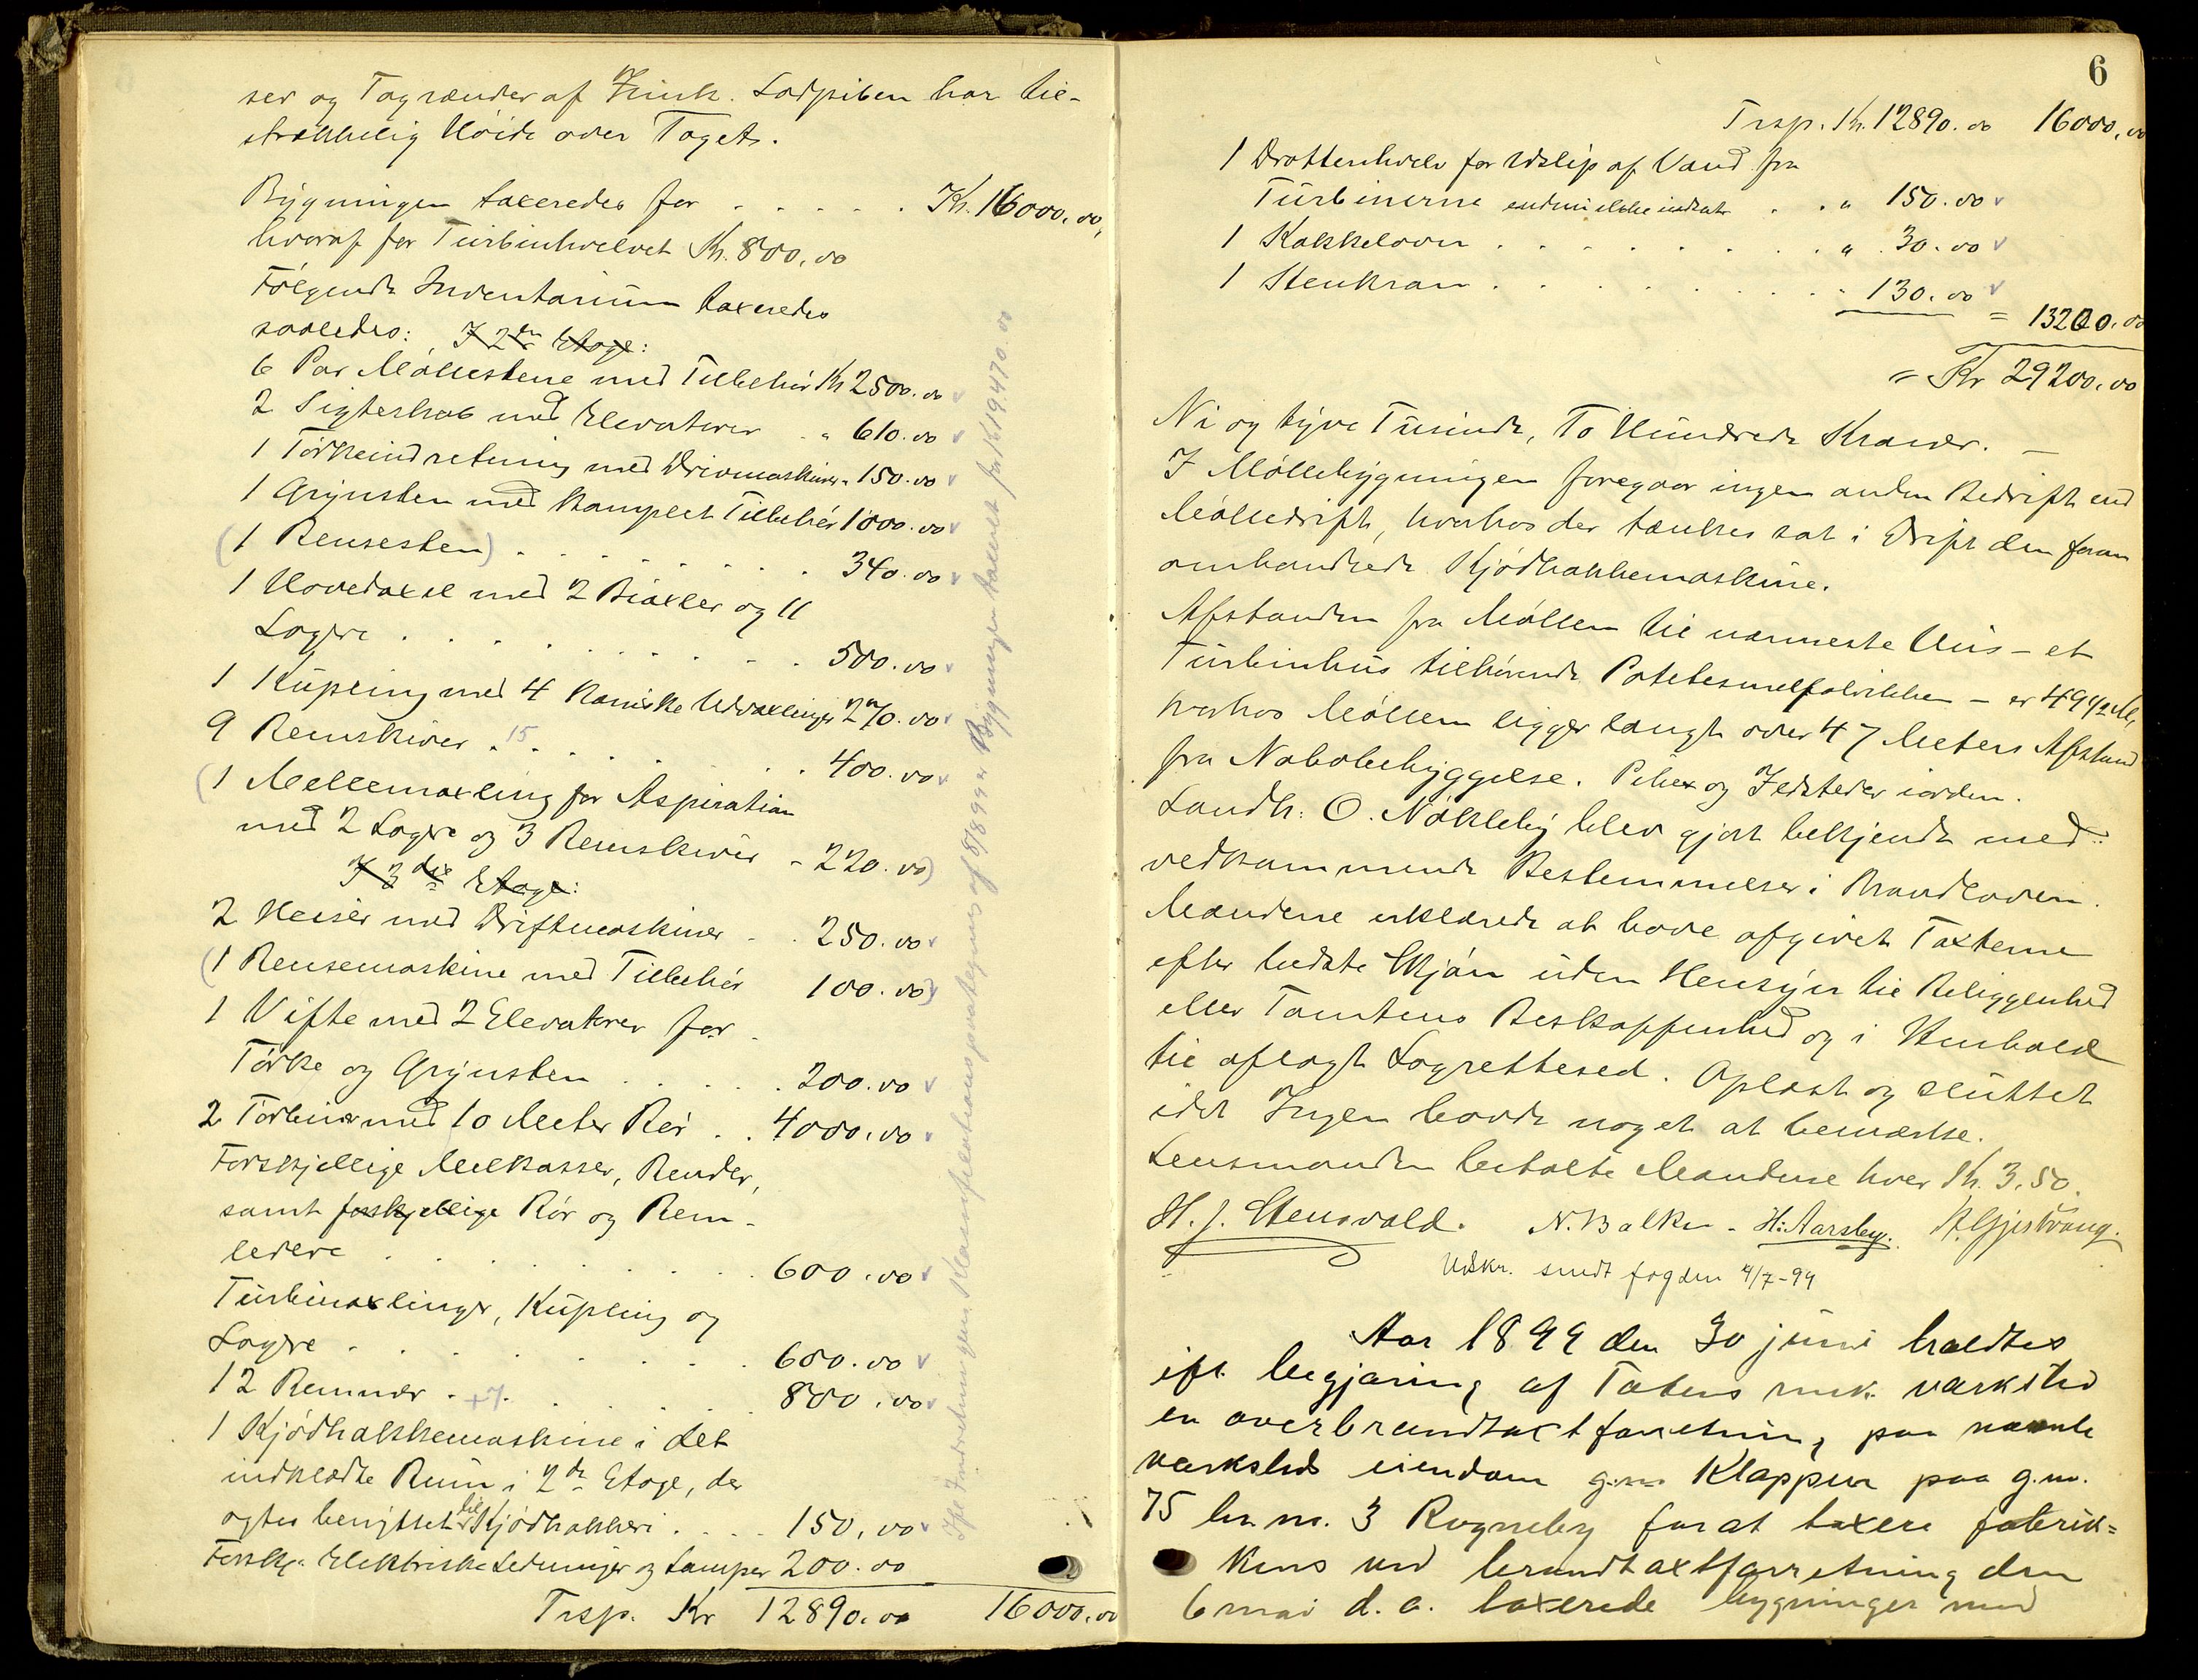 ser og Tagrender af Zink. Lodpiben har til-
strækkelig Høide over Taget.
Bygningen taxeredes for . . . . . Kr. 16000,00,
hvoraf for Turbinhvelvet Kr. 800,00
Følgende Inventarium taxeredes
saaledes: I 2den Etage:
6 Par Møllestene med Tilbehør Kr 2500.00 v
2 Sigteskab med Elevatorer . " 610.00 v
1 Tørkeindretning med Drivmaskiner " 150.00 v
1 Grynsten med komplet Tilbehør 1000.00 v
(1 Rensesten) . . . . . . 340.00 v
1 Hovedaxel med 2 Biaxler og 11
Lagre . . . . . . . . 500.00 v
1 Kupling med 4 koniske Udvexlinger 270.00 v
9 Remskiver . 15 . . . . . 400.00 v
(1 Mellemaxling for Aspiration
med 2 Lagre og 3 Remskiver - 220.00)
I 3die Etage:
2 Heiser med Driftmaskiner - . 250.00 v
(1 Rensemaskine med Tilbehør 100.00) v
1 Vifte med 2 Elevatorer for
Tørke og Grynsten . . . . . 200.00 v
2 Tørbiner med 10 Meter Rør . . 4000.00 v
Forskjellige Melkasser, Render,
samt forskjellige Rør og Rem-
ledere . . . . . . . . 600.00 v
Turbinaxlinger, Kupling og
Lagre . . . . . . . . 600.00 v
12 Remmer . +7. . . . . . 800.00 v
1 Kjødhakkemaskine i det
indklædte Rum i 2de Etage, der
agtes benyttet til Kjødhakkeri . . . . 150,00 v
Forskj. Elektriske Ledninger og Lamper 200.00
Trsp. Kr 12890.00 16000.00
Bygningen taxeret for Kr 19470.00
6
Trsp. Kr. 12890.00 16000.00
1 Drottenhvelv for Udslip af Vand fra
Turbinerne endnu ikke indsat . . " 150.00 v
1 Kakkelovn . . . . . . . . " 30.00 v
1 Stenkran . . . . . . . . 130.00 v
= 13200.00
= Kr 29200.00
Ni og tyve Tusinde, To Hundrede Kroner. —
I Møllebygningen foregaar ingen anden Bedrift end
Mølledrift, hvorhos der tænkes sat i Drift den foran
omhandlede Kjødhakkemaskine.
Afstanden fra Møllen til nærmeste Hus - et
Turbinhus tilhørende Potetesmelfabrikken - er 49 1/2 M,
hvorhos Møllen ligger langt over 47 Meters Afstand
fra Nabobebyggelse. Piber og Ildsteder iorden.
Landh: O. Nøkleby blev gjort bekjendt med
vedkommende Bestemmelser i Brandloven.
Mændene erklærede at have afgivet Taxterne
efter bedste Skjøn uden Hensyn til Beliggenhed
eller Tomtens Beskaffenhed og i Henhold
til aflagt Lagrettesed. Oplæst og sluttet
idet Ingen havde noget at bemærke.
Lensmanden betalte Mændene hver Kr. 3,50.
H. J. Stensvold. N. Balke - H: Aarsby. A. Gjestvang.
Udskr. sendt fogden 4/7-99
Aar 1899 den 30 juni holdtes
ift. begjæring af Totens mek. værksted
en overbrandtaxtforretning paa nævnte
værksteds eiendom g.no. Klappen paa g.no.
75 br.no. 3 Rogneby for at taxere fabrik=
kens ved brandtaxtforretning den
6 mai d. a. taxerede bygninger med